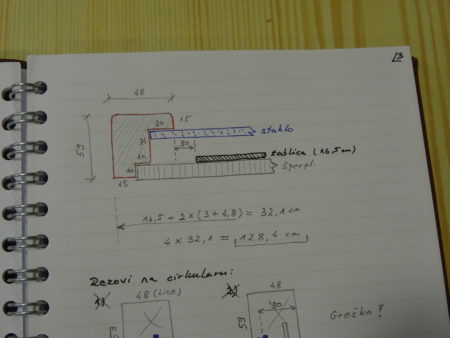 13
48
20
15
staklo
59
30
30
tablica (16,5 cm)
šperpl.
10
18
16,5 + 2 x (3 + 4,8) = 32,1 cm
4 x 32,1 = 128,4 cm
Rezovi na cirkularu:
1)
48 (Lice)
2)
48
30
59
59
Greška!